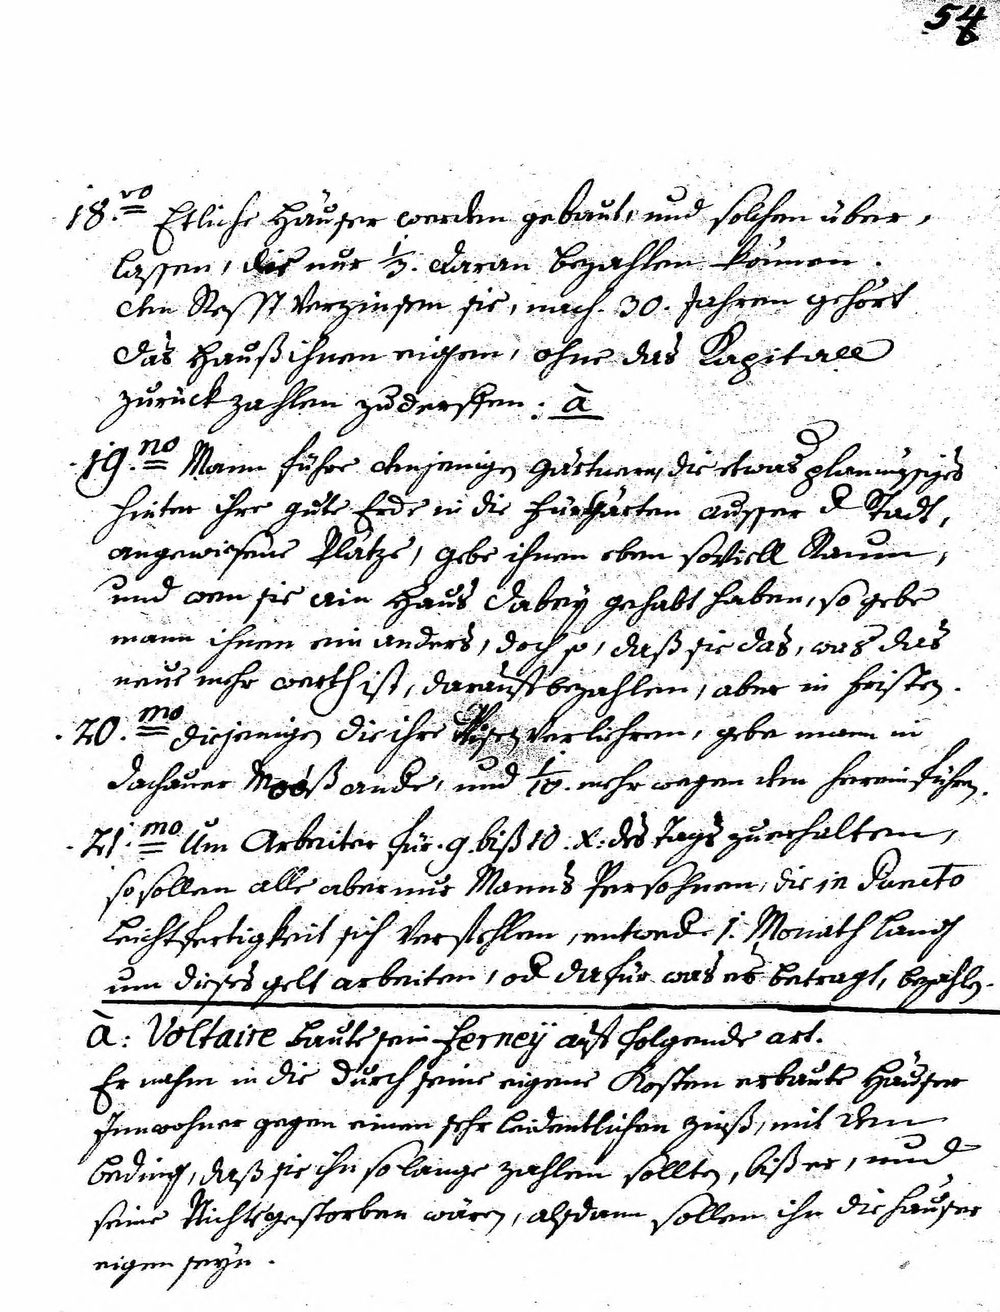 54
6
18.vo Etliche Häuser werden gebaut, und solchen über,
lassen, die nur 1/3. daran bezahlen können.
den Resst Verzinsen sie, nach 30. Jahren gehört
das Hauß ihnen eigen, ohne das Kapitall
zurück zahlen zu derffen. à
19.no Mann führe denjenigen Gärtnern, die etwas planmässiges
hinter ihre gute Erde in die Gärten ausser d Stadt,
angewiesene Plätze, gebe ihnen eben soviell Raum,
und wen sie ein Haus dabey gehabt haben, so gebe
mann ihnen ein anders, doch so, daß sie das, was das
neue mehr werth ist, darauf bezahlen, aber in fristen.
20.mo diejenigen die ihre Wisen Verlihren, gebe mann in
dachauer Mooß ande, und 1/10. mehr wegen dem hereinführen.
21.mo Um Arbeiter für 9 biß 10 X: des Tags zu erhalten,
so sollen alle aber nur Manns Persohnen, die in Puncto
Leichtfertigkeit sich Verfehlen, entwed. 1. Monath Lang
um dieses gelt arbeiten, od dafür was es betragt, bezahlen.
à: Voltaire baute sein Ferney auf folgende art.
Er nahm in die durch seine eigene Kosten erbaute Häuser
Innwohner gegen einen sehr leidentlichen zinß, mit dem
beding, daß sie ihn so lange zahlen sollten, biß er, und
seine Nichte gestorben wären, alsdann sollen ihn die Häuser
eigen seyn.